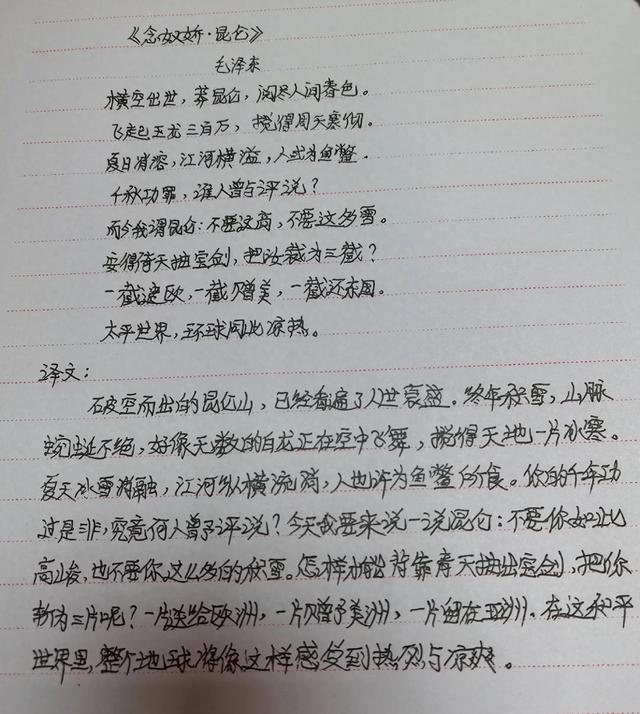 《念奴娇·昆仑》
毛泽东
横空出世，莽昆仑，阅尽人间春色。
飞起玉龙三百万，搅得周天寒彻。
夏日消溶，江河横溢，人或为鱼鳖。
千秋功罪，谁人曾与评说？
而今我谓昆仑：不要这高，不要这多雪。
安得倚天抽宝剑，把汝裁为三截？
一截遗欧，一截赠美，一截还东国。
太平世界，环球同此凉热。
译文：
破空而出的昆仑山，已经看遍了人世衰盛。终年积雪，山脉
蜿蜒不绝，好像无数的白龙正在空中飞舞，搅得天地一片冰寒。
夏天冰雪消融，江河纵横流淌，人也许为鱼鳖所食。你的千年功
过是非，究竟何人曾予评说？今天我要来说一说昆仑：不要你如此
高峻，也不要你这么多的积雪。怎样才能背靠青天抽出宝剑，把你
斩为三片呢？一片送给欧洲，一片赠予美洲，一片留在亚洲。在这和平
世界里，整个地球将像这样感受到热烈与凉爽。